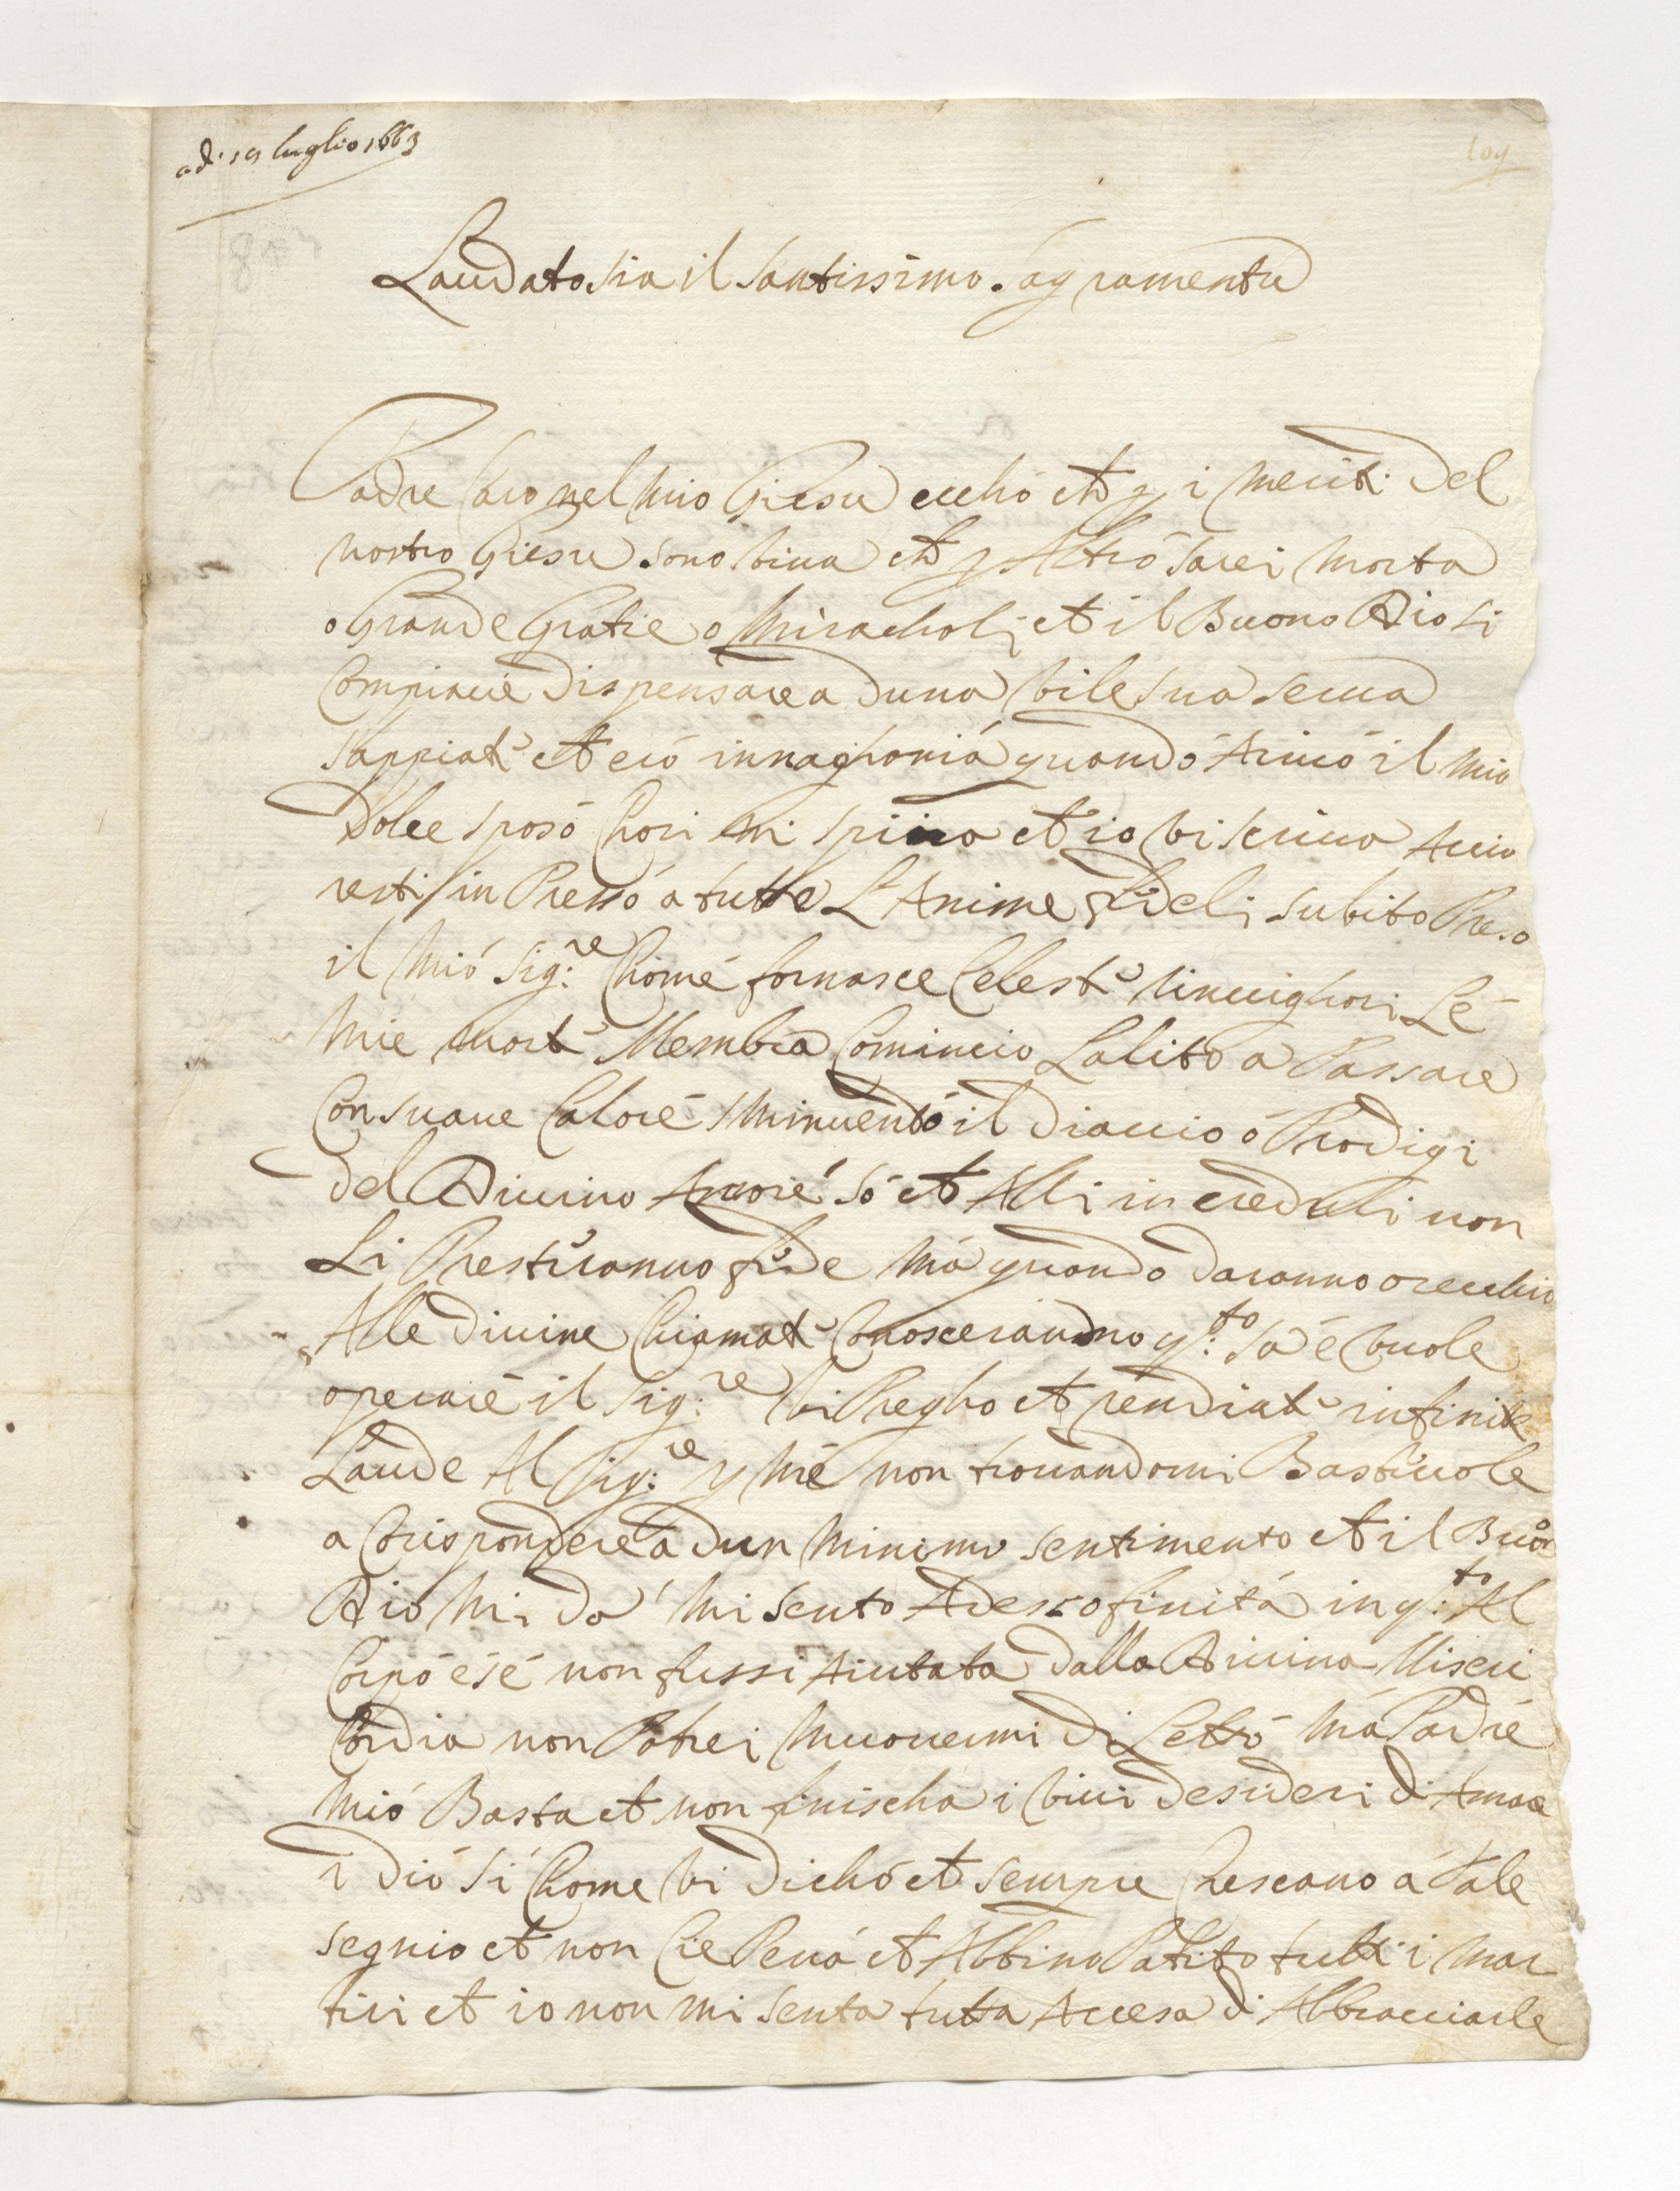 adì 19 luglio 1663
109
Laudato sia il santissimo sagramento
Padre Caro nel mio Giesu ecchó che p i meriti del
nostro Giesu sono viva che p Altró sarei morta
o Grande Gratie o Miracholi et il Buono Dio si
Compiacie dispensare a duna vile sua serva
sappiate et ero innaghonia quando Arivó il mio
Dolce sposó Chori mi spira et io vi scrivo Accio
resti inPressó a tutte L Anime fideli subito Preso
il mió sig:re Chome fornasce Celeste rinvighori Le
mie morte Membra Comincio Lalito a Passare
Con suave Caloré sminuendó il diaccio ó Prodigi
del Divino Amoré só et Alli increduli non
Li Presteranno fede má quando daranno orecchio
Alle divine Chiamate Conosceranno q:to sa é vuole
operare il sig:re vi Pregho et rendiate infinite
Laude Al sig:re p mé non trovandomi Bastevole
a Corispondere a dun minimo sentimento et il Buon
Dio mi dá mi sento Adesso finitá in q:to Al
Corpó é sé non fussi Aiutata dalla Divina Miseri
Cordia non Potrei muovermi di Lettó má Padré
mió Basta et non finischa i vivi desideri di Amare
i dió sí Chome vi dichó et sempre Crescano á tale
segnio et non Cie Pená et Abbino Patito tutti i mar
tiri et io non mi senta tutta Accesa di Abbracciarle